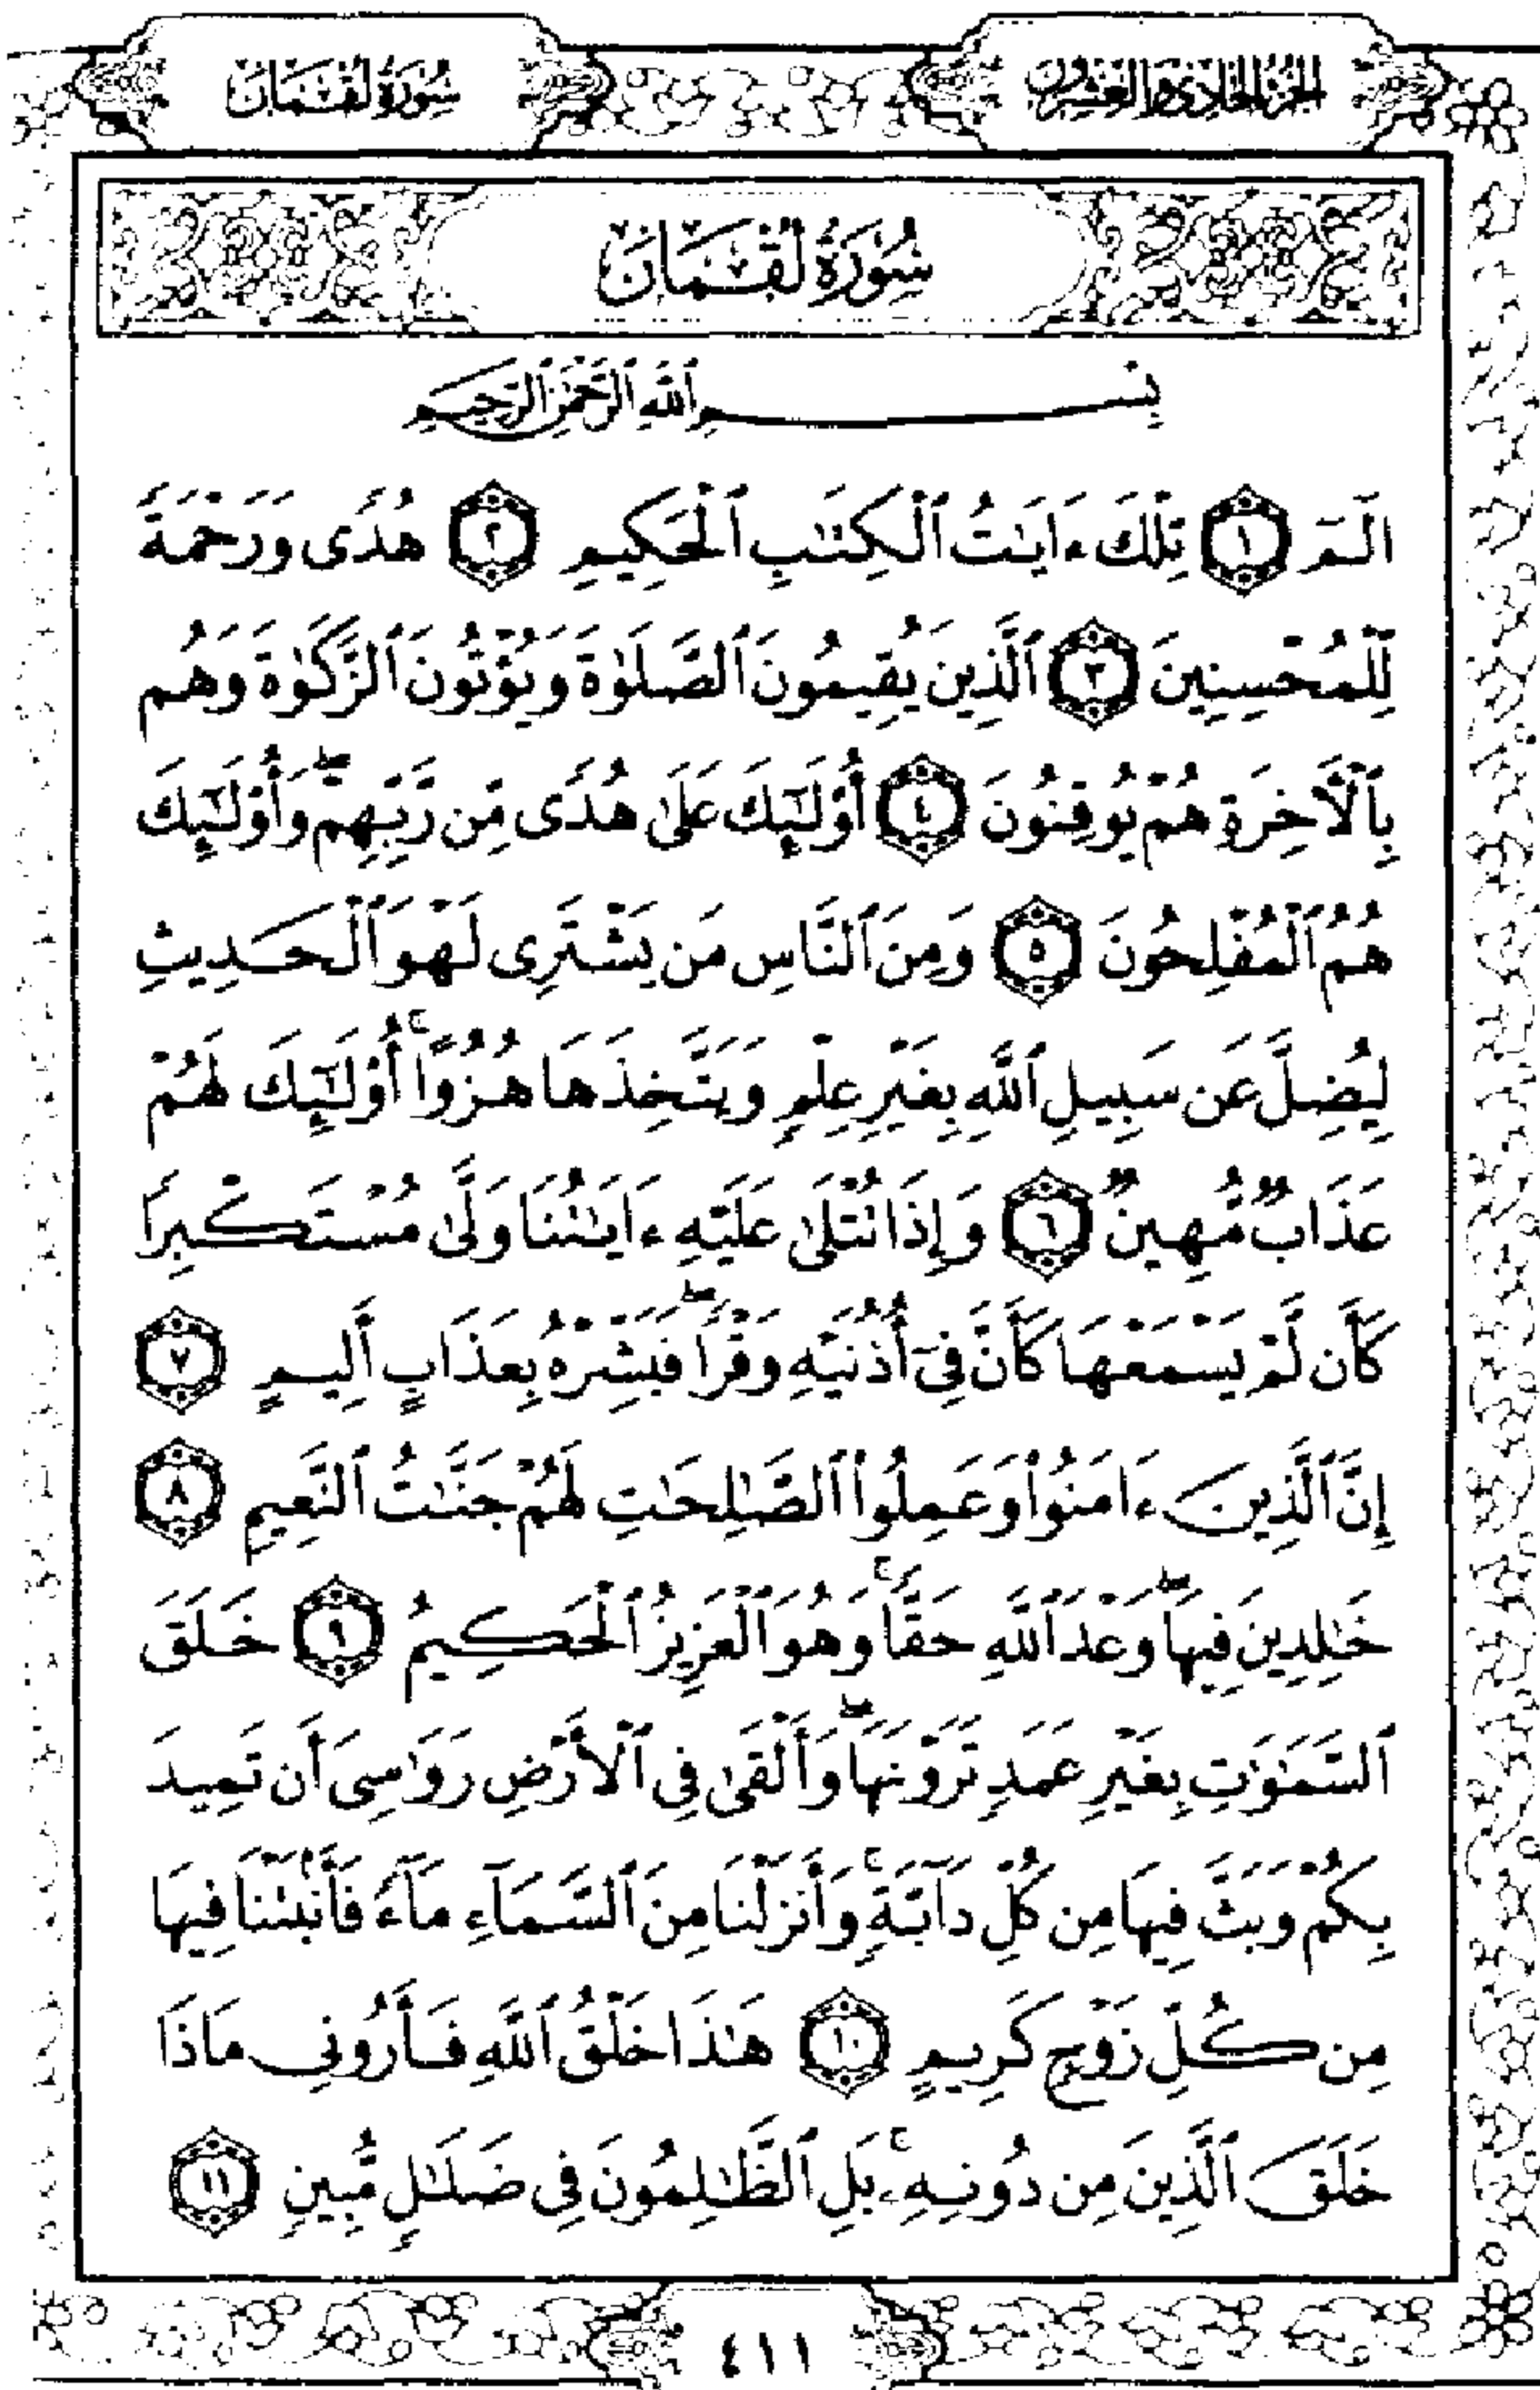 الجزء الحادي والعشرون
سورة لقمان
سُورَةُ لُقۡمَانَ
بِسۡمِ ٱللَّهِ ٱلرَّحۡمَٰنِ ٱلرَّحِيمِ
الٓمٓ ١ تِلۡكَ ءَايَٰتُ ٱلۡكِتَٰبِ ٱلۡحَكِيمِ ٢ هُدٗى وَرَحۡمَةٗ
لِّلۡمُحۡسِنِينَ ٣ ٱلَّذِينَ يُقِيمُونَ ٱلصَّلَوٰةَ وَيُؤۡتُونَ ٱلزَّكَوٰةَ وَهُم
بِٱلۡأٓخِرَةِ هُمۡ يُوقِنُونَ ٤ أُوْلَٰٓئِكَ عَلَىٰ هُدٗى مِّن رَّبِّهِمۡۖ وَأُوْلَٰٓئِكَ
هُمُ ٱلۡمُفۡلِحُونَ ٥ وَمِنَ ٱلنَّاسِ مَن يَشۡتَرِي لَهۡوَ ٱلۡحَدِيثِ
لِيُضِلَّ عَن سَبِيلِ ٱللَّهِ بِغَيۡرِ عِلۡمٖ وَيَتَّخِذَهَا هُزُوًاۚ أُوْلَٰٓئِكَ لَهُمۡ
عَذَابٞ مُّهِينٞ ٦ وَإِذَا تُتۡلَىٰ عَلَيۡهِ ءَايَٰتُنَا وَلَّىٰ مُسۡتَكۡبِرٗا
كَأَن لَّمۡ يَسۡمَعۡهَا كَأَنَّ فِيٓ أُذُنَيۡهِ وَقۡرٗاۖ فَبَشِّرۡهُ بِعَذَابٍ أَلِيمٍ ٧
إِنَّ ٱلَّذِينَ ءَامَنُواْ وَعَمِلُواْ ٱلصَّٰلِحَٰتِ لَهُمۡ جَنَّٰتُ ٱلنَّعِيمِ ٨
خَٰلِدِينَ فِيهَاۖ وَعۡدَ ٱللَّهِ حَقّٗاۚ وَهُوَ ٱلۡعَزِيزُ ٱلۡحَكِيمُ ٩ خَلَقَ
ٱلسَّمَٰوَٰتِ بِغَيۡرِ عَمَدٖ تَرَوۡنَهَاۖ وَأَلۡقَىٰ فِي ٱلۡأَرۡضِ رَوَٰسِيَ أَن تَمِيدَ
بِكُمۡ وَبَثَّ فِيهَا مِن كُلِّ دَآبَّةٖۚ وَأَنزَلۡنَا مِنَ ٱلسَّمَآءِ مَآءٗ فَأَنۢبَتۡنَا فِيهَا
مِن كُلِّ زَوۡجٖ كَرِيمٍ ١٠ هَٰذَا خَلۡقُ ٱللَّهِ فَأَرُونِي مَاذَا
خَلَقَ ٱلَّذِينَ مِن دُونِهِۦۚ بَلِ ٱلظَّٰلِمُونَ فِي ضَلَٰلٖ مُّبِينٖ ١١
٤١١